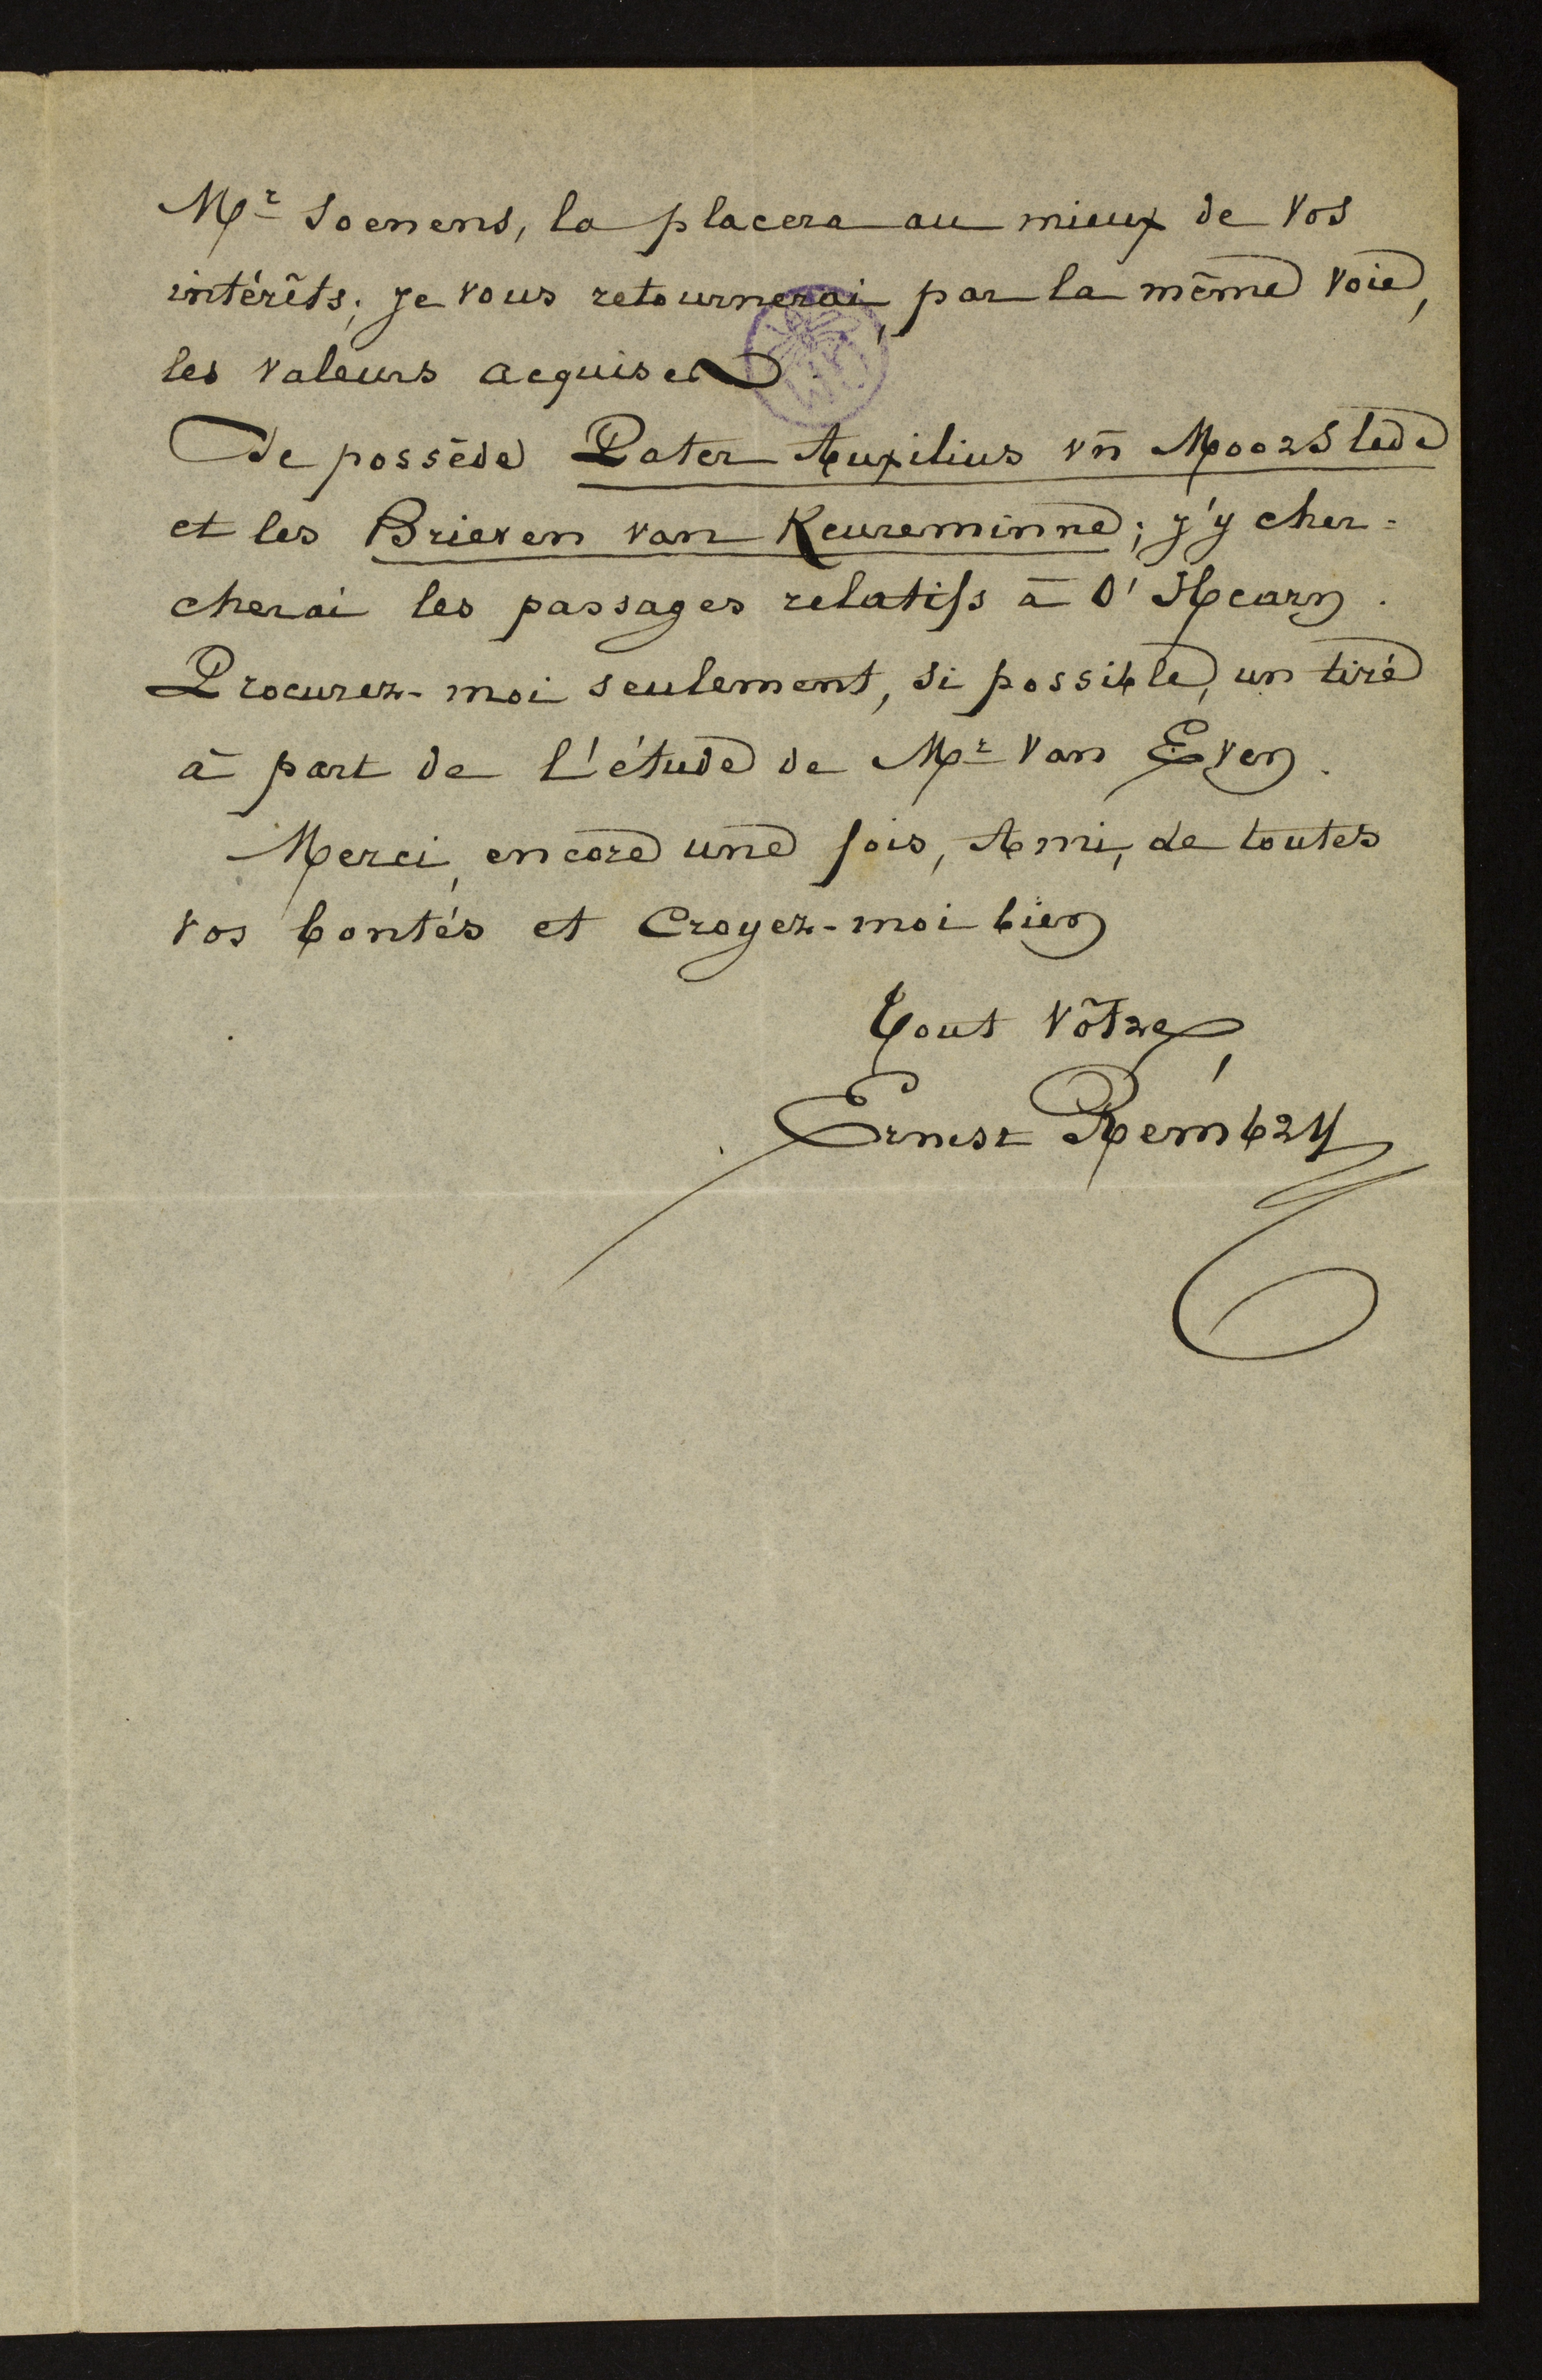 Mr Soenens, la placera au mieux de vos
intérêts; je vous retournerai, par la même voie,
les valeurs acquises.
Je possède Pater Auxilius vn Moorslede
et les Brieven van Keureminne; j'y cher-
cherai les passages relatifs à O'Hearn.
Procurez-moi seulement, si possible, un tiré
à part de l'étude de Mr Van Even.
Merci, encore une fois, Ami, de toutes
vos bontés et croyez-moi bien
Tout vôtre,
Ernest Rembry